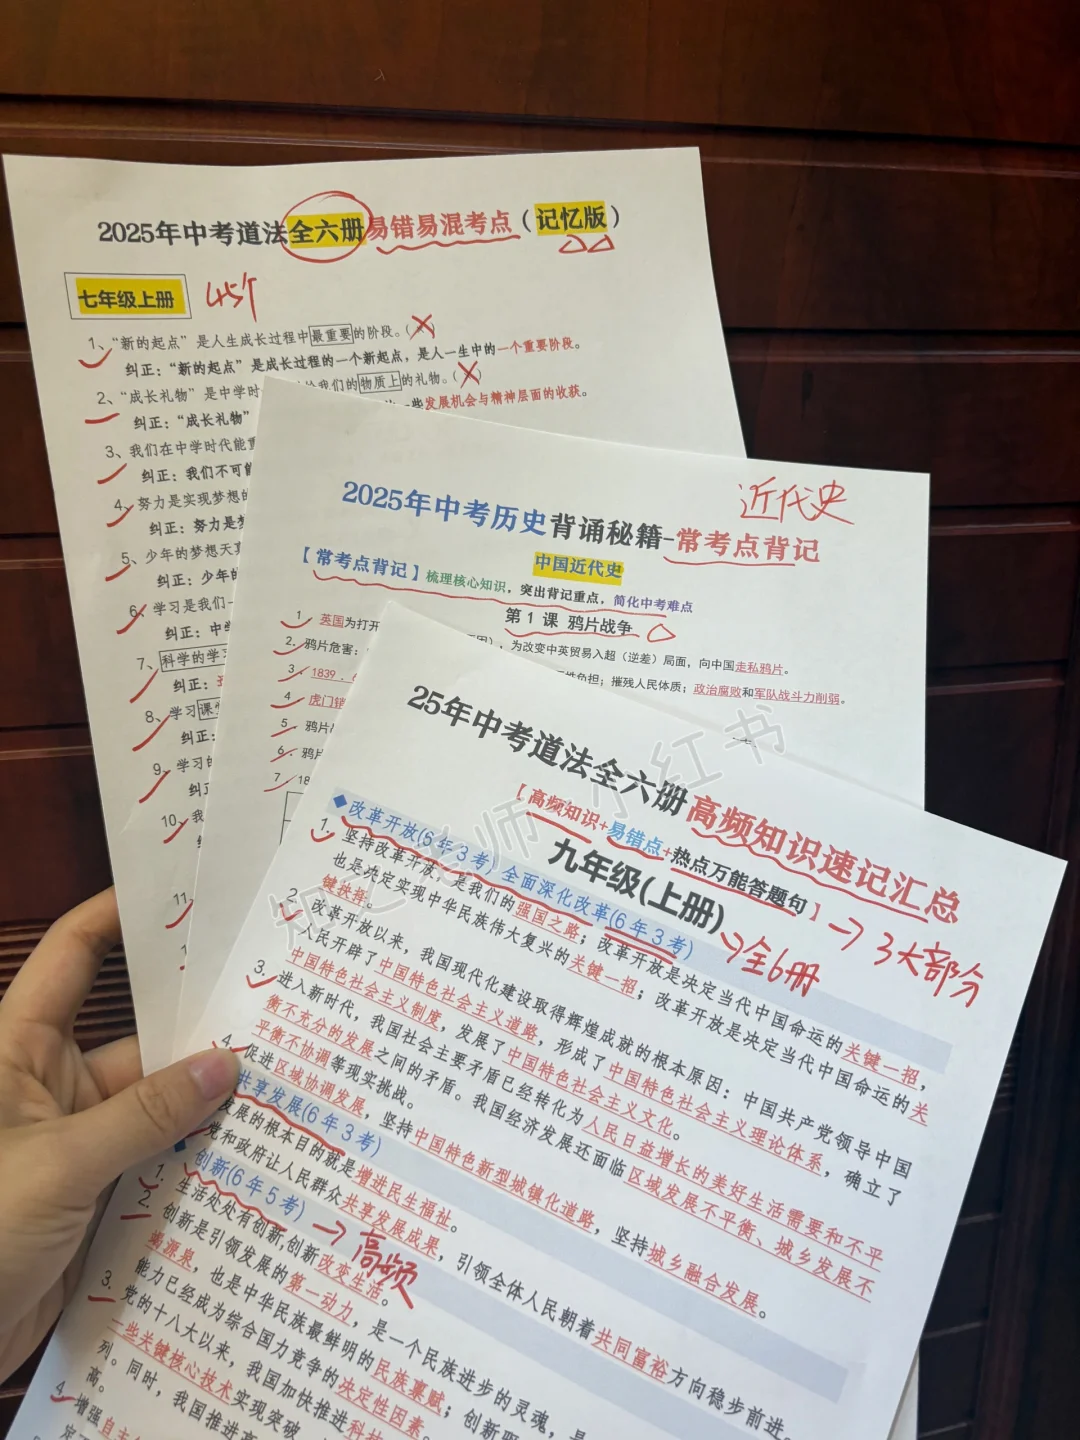 2025年中考道法全六册易错易混考点（记忆版）
七年级上册 45个
1、“新的起点”是人生成长过程中最重要的阶段。（X）
纠正：“新的起点”是成长过程的一个新起点，是人一生中的一个重要阶段。
2、“成长礼物”是中学时 给我们的物质上的礼物。（X）
纠正：“成长礼物” 一些发展机会与精神层面的收获。
3、我们在中学时代能重
纠正：我们不可能
4、努力是实现梦想的
纠正：努力是梦
5、少年的梦想天真
纠正：少年的
6、学习是我们
纠正：中学
7、科学的学习
纠正：
8、学习课堂
纠正：
9、学习的
纠正
10、我
11、
近代史
2025年中考历史背诵秘籍-常考点背记
中国近代史
【常考点背记】梳理核心知识，突出背记重点，简化中考难点
第1课 鸦片战争
1 英国为打开 ），为改变中英贸易入超（逆差）局面，向中国走私鸦片。
2．鸦片危害： 负担；摧残人民体质；政治腐败和军队战斗力削弱。
3．1839．6
4 虎门销
5．鸦片
6．鸦片
7．18
25年中考道法全六册高频知识速记汇总
【高频知识+易错点+热点万能答题句】→3大部分
九年级(上册) →全6册
◆改革开放(6年3考) 全面深化改革(6年3考)
1．坚持改革开放，是我们的强国之路；改革开放是决定当代中国命运的关键一招，
也是决定实现中华民族伟大复兴的关键一招；改革开放是决定当代中国命运的关
键抉择。
2．改革开放以来，我国现代化建设取得辉煌成就的根本原因：中国共产党领导中国
人民开辟了中国特色社会主义道路，形成了中国特色社会主义理论体系，确立了
中国特色社会主义制度，发展了中国特色社会主义文化。
3．进入新时代，我国社会主要矛盾已经转化为人民日益增长的美好生活需要和不平
衡不充分的发展之间的矛盾。我国经济发展还面临区域发展不平衡、城乡发展不
平衡不协调等现实挑战。
4．促进区域协调发展，坚持中国特色新型城镇化道路，坚持城乡融合发展。
共享发展(6年3考)
发展的根本目的就是增进民生福祉。
党和政府让人民群众共享发展成果，引领全体人民朝着共同富裕方向稳步前进。
创新(6年5考) →高频
1．生活处处有创新,创新改变生活。
2．创新是引领发展的第一动力，是一个民族进步的灵魂，是
竭源泉，也是中华民族最鲜明的民族禀赋；创新
能力已经成为综合国力竞争的决定性因素。
3．党的十八大以来，我国加快推进科技
一些关键核心技术实现突破
列。同时，我国推进高
高。
4．增强自主
知乙老师 小红书